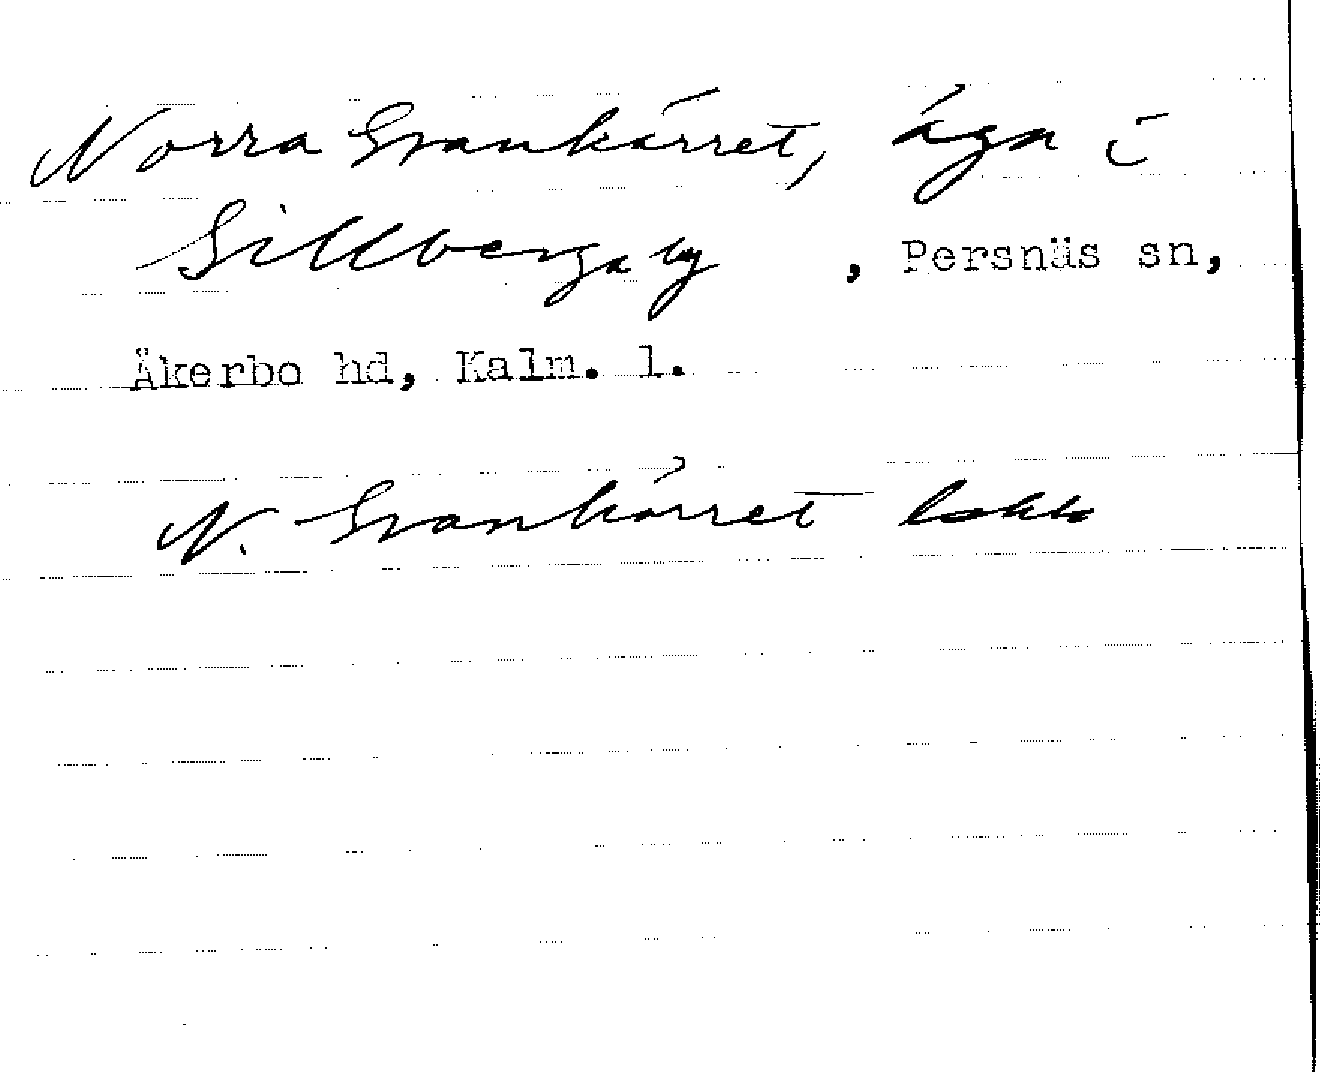 Norra Grankärret, äga i
Gillberga by, Persnäs sn,
Åkerbo hd, Kalm. l.
N. Grankärret